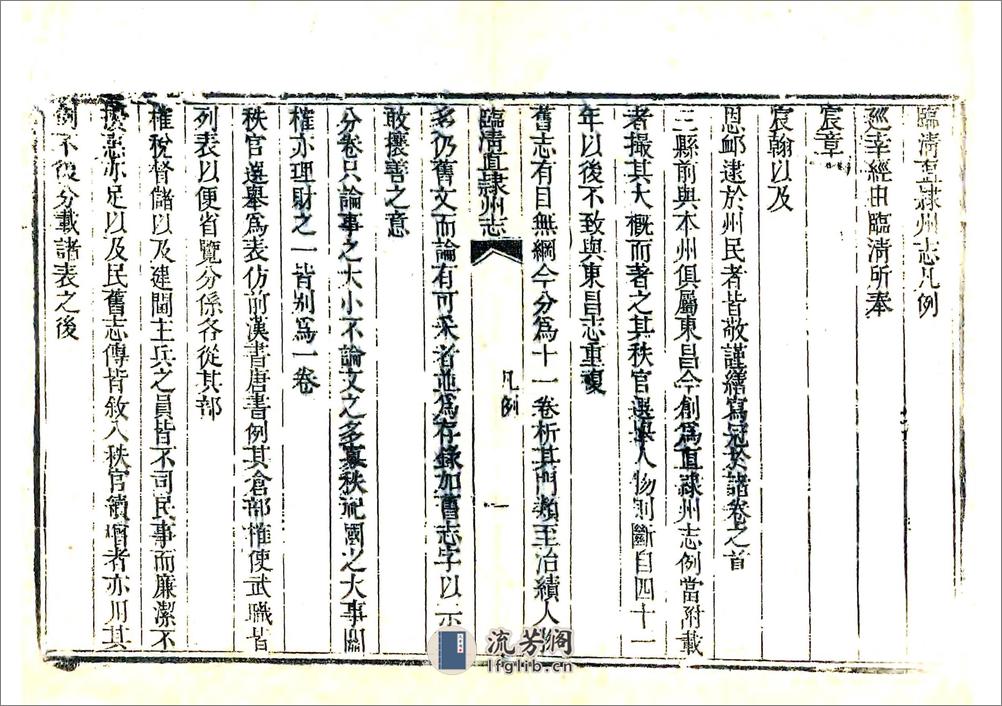 臨清直隷州志凡例
廵幸經由臨清所奉
宸章
宸翰以及
恩䘏逮於州民者皆敬謹繕寫冠於諸卷之首
三縣前與本州俱屬東昌今創為直隷州志例當附載
者撮其大概而著之其秩官選舉人物則斷自四十一
年以後不致與東昌志重複
舊志有目無綱今分為十一卷析其門類至治績人物
臨清直隷州志
凡例
一
多仍舊文而論有可采者並為存錄加舊志字以示不
敢攘善之意
分卷只論事之大小不論文之多寡秩祀國之大事關
榷亦理財之一皆别為一卷
秩官選舉為表仿前漢書唐書例其倉部榷使武職皆
列表以便省覽分係各從其部
榷稅督儲以及建閫主兵之員皆不司民事而廉潔不
擾忠亦足以及民舊志傳皆敘入秩官續增者亦用其
例不復分載諸表之後
流芳阁
lfglib.cn